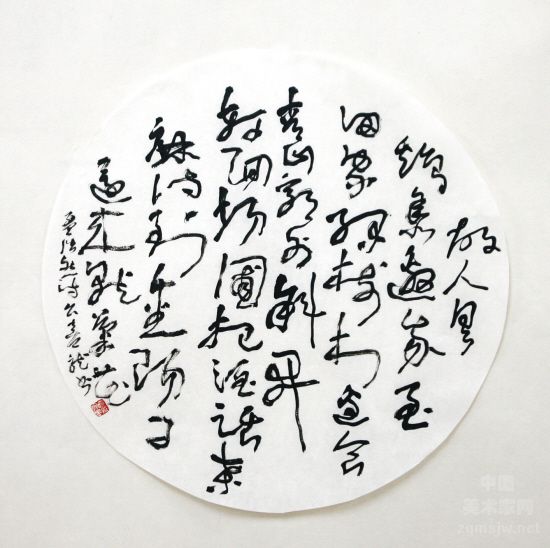 故人具
鸡黍邀我至
田家绿树村边合
青山郭外斜开
轩面场圃把酒话桑
麻待到重阳日
还来就菊花
孟浩然诗 龙书
中国
美术家网
zgmsjw.net